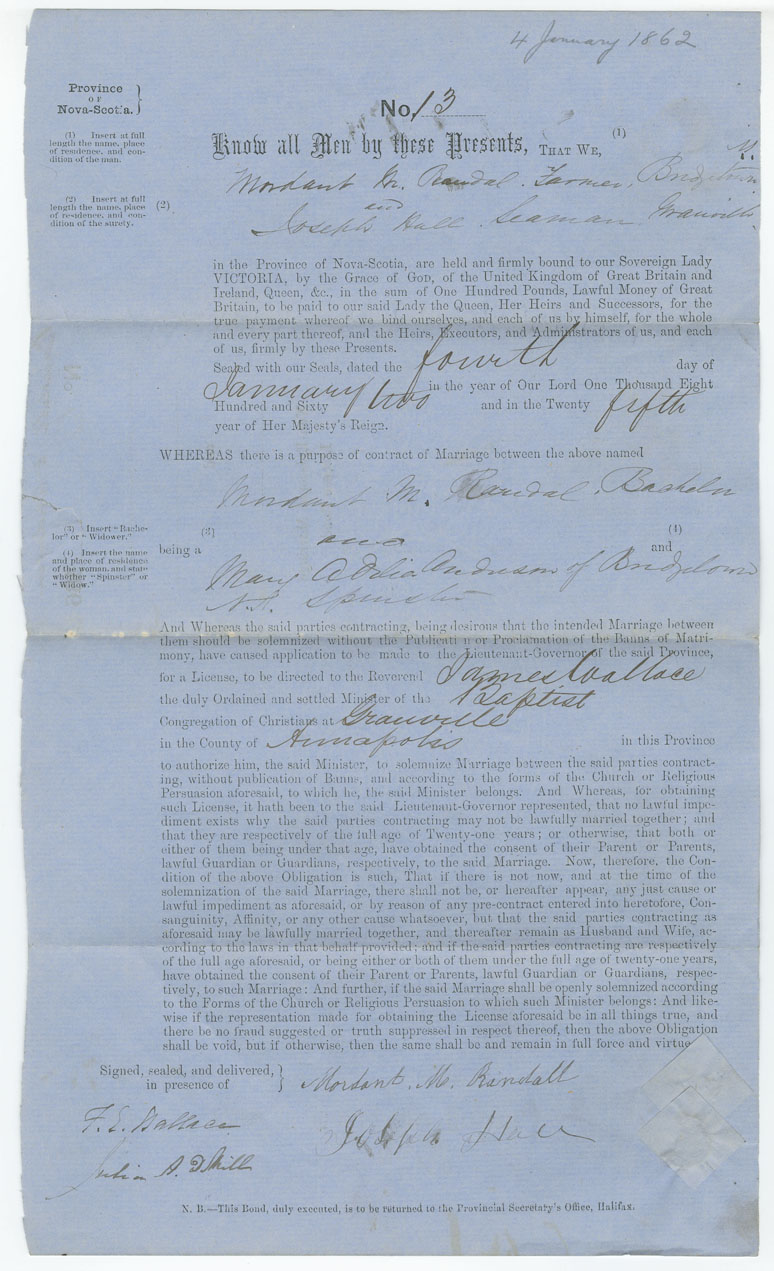 4 January 1862
Province
OF
Nova-Scotia.
No. 13
(1) Insert at full
length the name, place
of residence, and con-
dition of the man.
Know all Men by these Presents, THAT WE, (1)
Mordant M. Randal. Farmer. Bridgetown
(2) Insert at full
length the name, place
of residence, and con-
dition of the surety.
(2)
and
Joseph Hall Seaman Granville
in the Province of Nova-Scotia, are held and firmly bound to our Sovereign Lady
VICTORIA, by the Grace of GOD, of the United Kingdom of Great Britain and
Ireland, Queen, &c., in the sum of One Hundred Pounds, Lawful Money of Great
Britain, to be paid to our said Lady the Queen, Her Heirs and Successors, for the
true payment whereof we bind ourselves, and each of us by himself, for the whole
and every part thereof, and the Heirs, Executors, and Administrators of us, and each
of us, firmly by these Presents.
Sealed with our Seals, dated the fourth day of
January in the year of Our Lord One Thousand Eight
Hundred and Sixty two and in the Twenty fifth
year of Her Majesty's Reign.
WHEREAS there is a purpose of contract of Marriage between the above named
Mordant M. Randal. Bachelor
(3) Insert "Bache-
lor" or "Widower."
(4) Insert the name
and place of residence
of the woman, and state
whether "Spinster" or
"Widow."
(3) and (4)
being a and
Mary Adelia Anderson of Bridgetown
N.S. Spinster
And Whereas the said parties contracting, being desirous that the intended Marriage between
them should be solemnized without the Publication or Proclamation of the Banns of Matri-
mony, have caused application to be made to the Lieutenant-Governor of the said Province,
for a License, to be directed to the Reverend James Wallace
the duly Ordained and settled Minister of the Baptist
Congregation of Christians at Granville
in the County of Annapolis in this Province
to authorize him, the said Minister, to solemnize Marriage between the said parties contract-
ing, without publication of Banns, and according to the forms of the Church or Religious
Persuasion aforesaid, to which he, the said Minister belongs. And Whereas, for obtaining
such License, it hath been to the said Lieutenant-Governor represented, that no lawful impe-
diment exists why the said parties contracting may not be lawfully married together; and
that they are respectively of the full age of Twenty-one years; or otherwise, that both or
either of them being under that age, have obtained the consent of their Parent or Parents,
lawful Guardian or Guardians, respectively, to the said Marriage. Now, therefore, the Con-
dition of the above Obligation is such, That if there is not now, and at the time of the
solemnization of the said Marriage, there shall not be, or hereafter appear, any just cause or
lawful impediment as aforesaid, or by reason of any pre-contract entered into heretofore, Con-
sanguinity, Affinity, or any other cause whatsoever, but that the said parties contracting as
aforesaid may be lawfully married together, and thereafter remain as Husband and Wife, ac-
cording to the laws in that behalf provided; and if the said parties contracting are respectively
of the full age aforesaid, or being either or both of them under the full age of twenty-one years,
have obtained the consent of their Parent or Parents, lawful Guardian or Guardians, respec-
tively, to such Marriage: And further, if the said Marriage shall be openly solemnized according
to the Forms of the Church or Religious Persuasion to which such Minister belongs: And like-
wise if the representation made for obtaining the License aforesaid be in all things true, and
there be no fraud suggested or truth suppressed in respect thereof, then the above Obligation
shall be void, but if otherwise, then the same shall be and remain in full force and virtue.
Signed, sealed, and delivered,
in presence of
Mordant. M. Randall
F. E. Wallace
Joseph Hall
A.
N. B.—This Bond, duly executed, is to be returned to the Provincial Secretary's Office, Halifax.